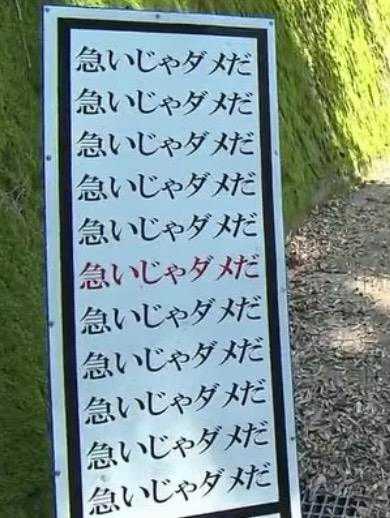 急いじゃダメだ
急いじゃダメだ
急いじゃダメだ
急いじゃダメだ
急いじゃダメだ
急いじゃダメだ
急いじゃダメだ
急いじゃダメだ
急いじゃダメだ
急いじゃダメだ
急いじゃダメだ